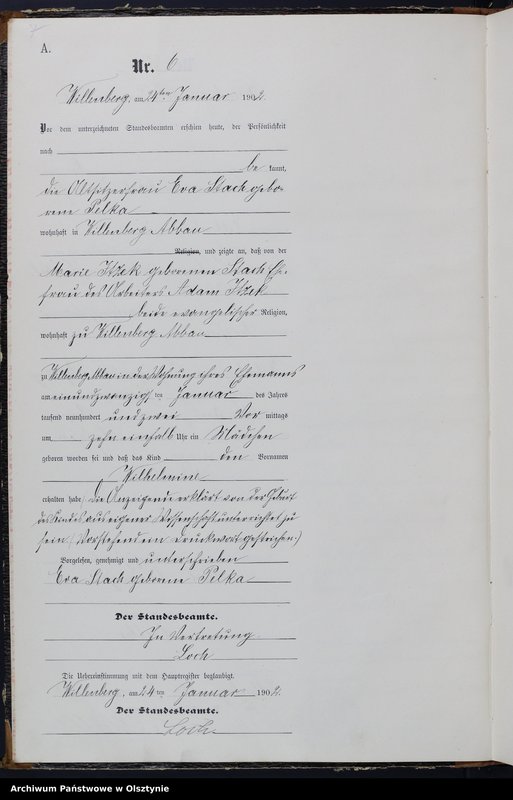 A.
Nr. 6
Willenberg, am 24ten Januar 1902.
Vor dem unterzeichneten Standesbeamten erschien heute, der Persönlichkeit
nach
be kannt,
die Altsitzerfrau Eva Stach gebo-
rene Pilka
wohnhaft in Willenberg Abbau
Religion, und zeigte an, daß von der
Marie Itzek geborenen Stach Ehe-
frau des Arbeiters Adam Itzek
beide evangelischer Religion,
wohnhaft zu Willenberg Abbau
zu Willenberg Abbau in der Wohnung ihres Ehemanns
am einundzwanzigsten Januar des Jahres
tausend neunhundert und zwei Vor mittags
um zehn einhalb Uhr ein Mädchen
geboren worden sei und daß das Kind den Vornamen
Wilhelmine
erhalten habe. Die Anzeigende erklärt von der Geburt
des Kindes aus eigener Wissenschaft unterrichtet zu
sein. (Vorstehend ein Druckwort gestrichen.)
Vorgelesen, genehmigt und unterschrieben
Eva Stach geborene Pilka
Der Standesbeamte.
In Vertretung
Loch
Die Uebereinstimmung mit dem Hauptregister beglaubigt.
Willenberg, am 24ten Januar 1902.
Der Standesbeamte.
Loch
Archiwum Państwowe w Olsztynie